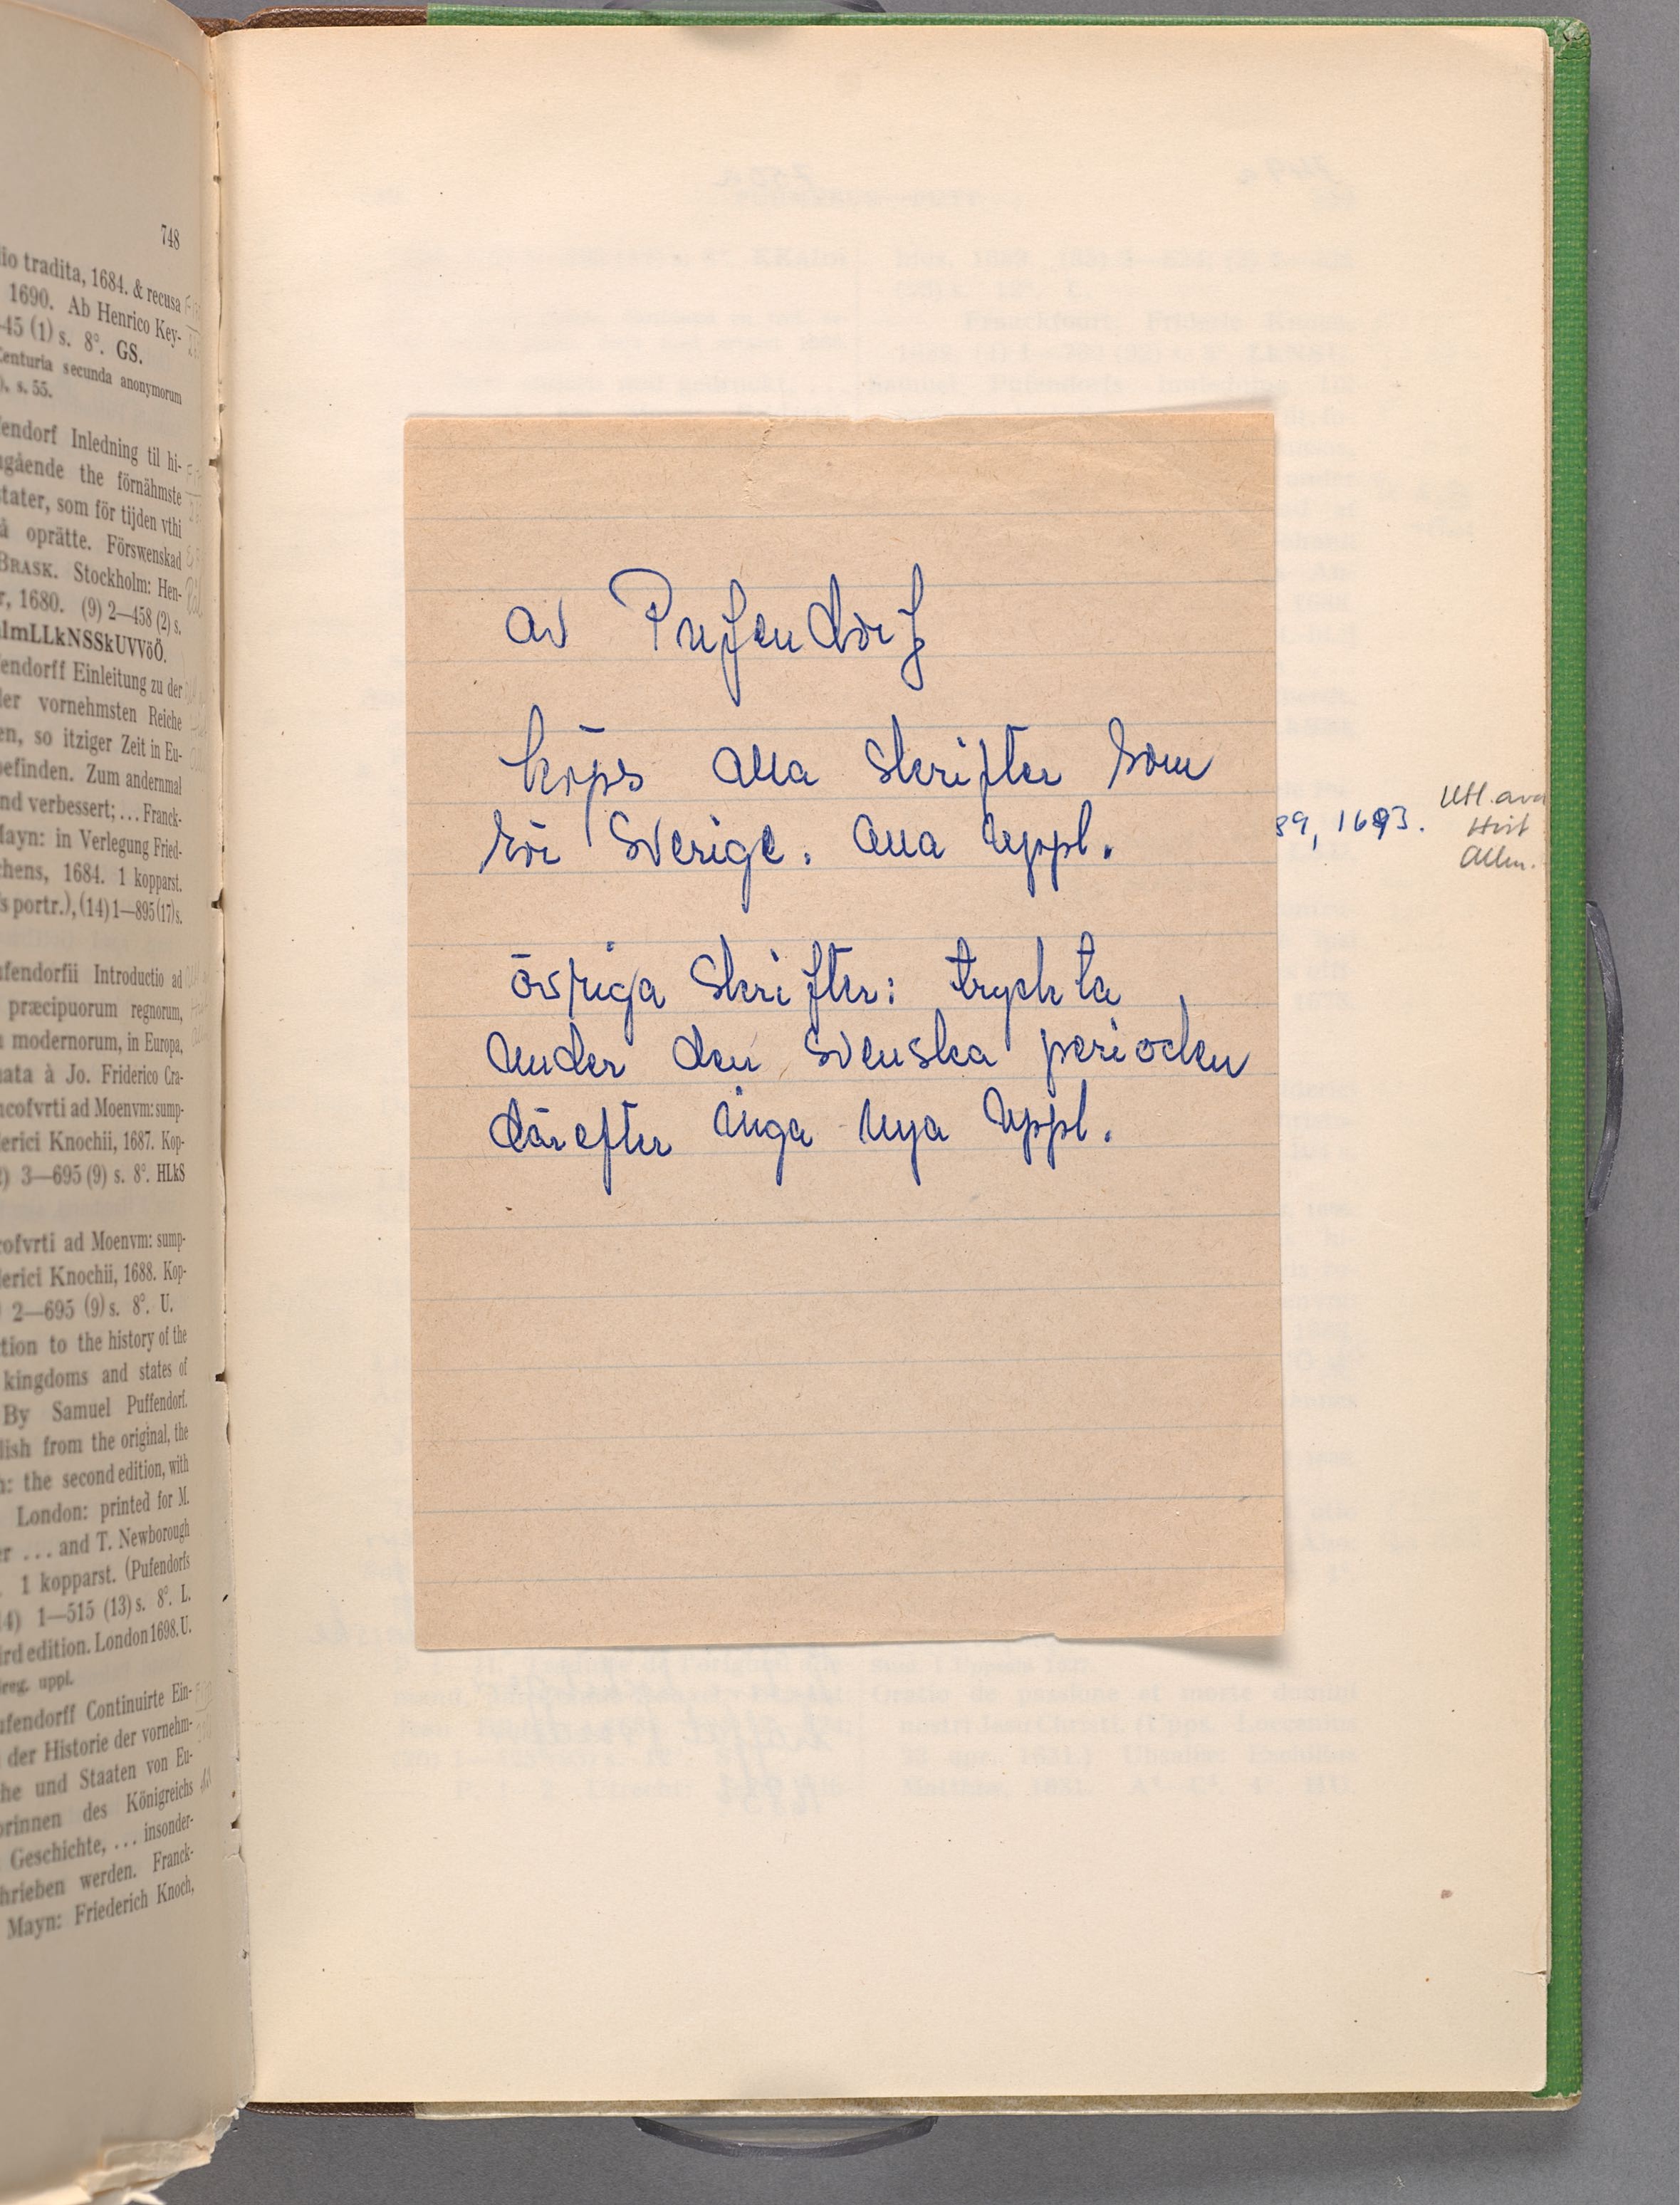 748
io tradita, 1684. & recusa
1690. Ab Henrico Key-
45 (1) s. 8°. GS.
Centuria secunda anonymorum
). s. 55.
fendorf Inledning til hi-
ngående the förnähmste
stater, som för tijden vthi
å oprätte. Förswenskad
BRASK. Stockholm: Hen-
r, 1680. (9) 2—458 (2) s.
lmLLkNSSkUVVöÖ.
fendorff Einleitung zu der
der vornehmsten Reiche
en, so itziger Zeit in Eu-
befinden. Zum andernmal
nd verbessert; ... Franck-
Mayn: in Verlegung Fried-
chens, 1684. 1 kopparst.
s portr.), (14) 1—895 (17) s.
ufendorfii Introductio ad
præcipuorum regnorum,
modernorum, in Europa,
nata à Jo. Friderico Cra-
ncofvrti ad Moenvm: sump-
derici Knochii, 1687. Kop-
2) 3—695 (9) s. 8°. HLkS
cofvrti ad Moenvm: sump-
derici Knochii, 1688. Kop-
2—695 (9) s. 8°. U.
tion to the history of the
kingdoms and states of
By Samuel Puffendorf.
lish from the original, the
n: the second edition, with
London: printed for M.
er ... and T. Newborough
1 kopparst. (Pufendorfs
14) 1—515 (13) s. 8°. L.
ird edition. London 1698. U.
reg. uppl.
ufendorff Continuirte Ein-
der Historie der vornehm-
he und Staaten von Eu-
orinnen des Königreichs
Geschichte, ... insonder-
hrieben werden. Franck-
Mayn: Friederich Knoch,
av Pufendorf
köps alla skrifter som
rör Sverige. alla uppl.
övriga skrifter: tryckta
under den svenska perioden
därefter inga nya uppl.
89, 1693.
Utl. avd
Hist
Allm.